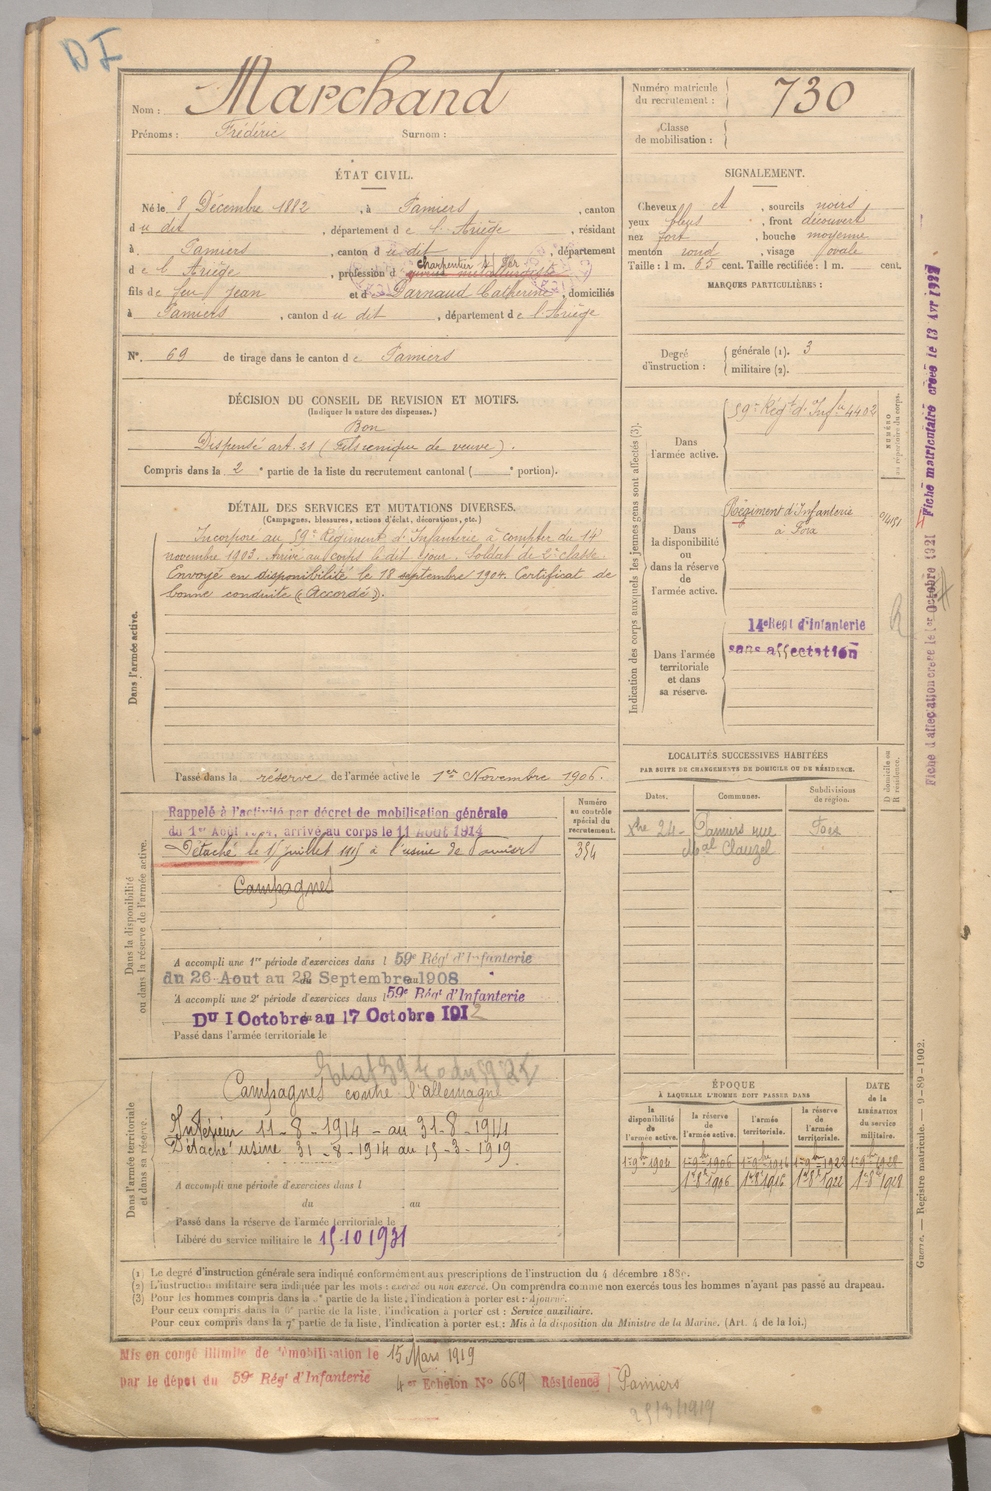 DI
Nom : Marchand
Prénoms : Frédéric Surnom :
Numéro matricule du recrutement : 730
Classe de mobilisation :
ÉTAT CIVIL.
Né le 8 Décembre 1882 , à Pamiers , canton
du dit , département de l'Ariège , résidant
à Pamiers , canton du dit , département
de l'Ariège , profession d charpentier
fils de feu Jean et de Darnaud Catherine , domiciliés
à Pamiers , canton du dit , département de l'Ariège
N°. 69 de tirage dans le canton de Pamiers
SIGNALEMENT.
Cheveux et , sourcils noirs
yeux bleus , front découvert
nez fort , bouche moyenne
menton rond , visage ovale
Taille : 1 m. 65 cent. Taille rectifiée : 1 m. cent.
MARQUES PARTICULIÈRES :
Degré d'instruction : générale (1). 3
militaire (2).
DÉCISION DU CONSEIL DE REVISION ET MOTIFS.
(Indiquer la nature des dispenses.)
Bon
Dispensé art. 21 (Fils unique de veuve).
Compris dans la 2e partie de la liste du recrutement cantonal ( e portion).
DÉTAIL DES SERVICES ET MUTATIONS DIVERSES.
(Campagnes, blessures, actions d'éclat, décorations, etc.)
Dans l'armée active.
Incorporé au 59e Régiment d'Infanterie à compter du 14
novembre 1903. Arrivé au corps le dit jour. Soldat de 2e classe.
Envoyé en disponibilité le 18 septembre 1904. Certificat de
bonne conduite "Accordé".
Passé dans la réserve de l'armée active le 1er Novembre 1906.
Indication des corps auxquels les jeunes gens sont affectés (3).
NUMÉRO au répertoire du corps.
Dans l'armée active.
59e Régt d'Infie 4402
Dans la disponibilité ou dans la réserve de l'armée active.
Régiment d'Infanterie
à Foix
Dans l'armée territoriale et dans sa réserve.
14e Régt d'Infanterie
sans affectation
LOCALITÉS SUCCESSIVES HABITÉES
PAR SUITE DE CHANGEMENTS DE DOMICILE OU DE RÉSIDENCE.
D domicile ou R résidence.
Dates. Communes. Subdivisions de région.
Xbre 24 - Pamiers rue Foix
Mal Clauzel
Dans la disponibilité ou dans la réserve de l'armée active.
Numéro au contrôle spécial du recrutement.
354
Rappelé à l'activité par décret de mobilisation générale
du 1er Août 1914, arrivé au corps le 11 Août 1914
Détaché le 15 juillet 1915 à l'usine de Pamiers
Campagnes
A accompli une 1re période d'exercices dans l 59e Régt d'Infanterie
du 26 Aout au 22 Septembre 1908
A accompli une 2e période d'exercices dans l 59e Régt d'Infanterie
Du 1 Octobre au 17 Octobre 1912
Passé dans l'armée territoriale le
Dans l'armée territoriale et dans sa réserve.
Campagnes contre l'allemagne
Intérieur 11-8-1914 - au 31-8-1914
Détaché usine 31-8-1914 au 15-3-1919
A accompli une période d'exercices dans l
du au
Passé dans la réserve de l'armée territoriale le
Libéré du service militaire le 15-10-1931
ÉPOQUE
À LAQUELLE L'HOMME DOIT PASSER DANS
DATE de la LIBÉRATION du service militaire.
la disponibilité de l'armée active. la réserve de l'armée active. l'armée territoriale. la réserve de l'armée territoriale.
1er 9bre 1904 1er 9bre 1906 1er 9bre 1916 1er 9bre 1922 1er 9bre 1928
1er 8bre 1906 1er 8bre 1916 1er 8bre 1922 1er 8bre 1928
(1) Le degré d'instruction générale sera indiqué conformément aux prescriptions de l'instruction du 4 décembre 1889.
(2) L'instruction militaire sera indiquée par les mots : exercé ou non exercé. On comprendra comme non exercés tous les hommes n'ayant pas passé au drapeau.
(3) Pour les hommes compris dans la e partie de la liste, l'indication à porter est : Ajourné.
Pour ceux compris dans la 6e partie de la liste, l'indication à porter est : Service auxiliaire.
Pour ceux compris dans la 7e partie de la liste, l'indication à porter est : Mis à la disposition du Ministre de la Marine. (Art. 4 de la loi.)
Mis en congé illimité de démobilisation le 15 Mars 1919
par le dépôt du 59e Régt d'Infanterie 4er Echelon N° 669 Résidence Pamiers
25/3/1919
Guerre. — Registre matricule. — 9-89-1902.
Fiche d'affectation créée le 1er Octobre 1921
Fiche matriculaire créée le 13 Avr 1927